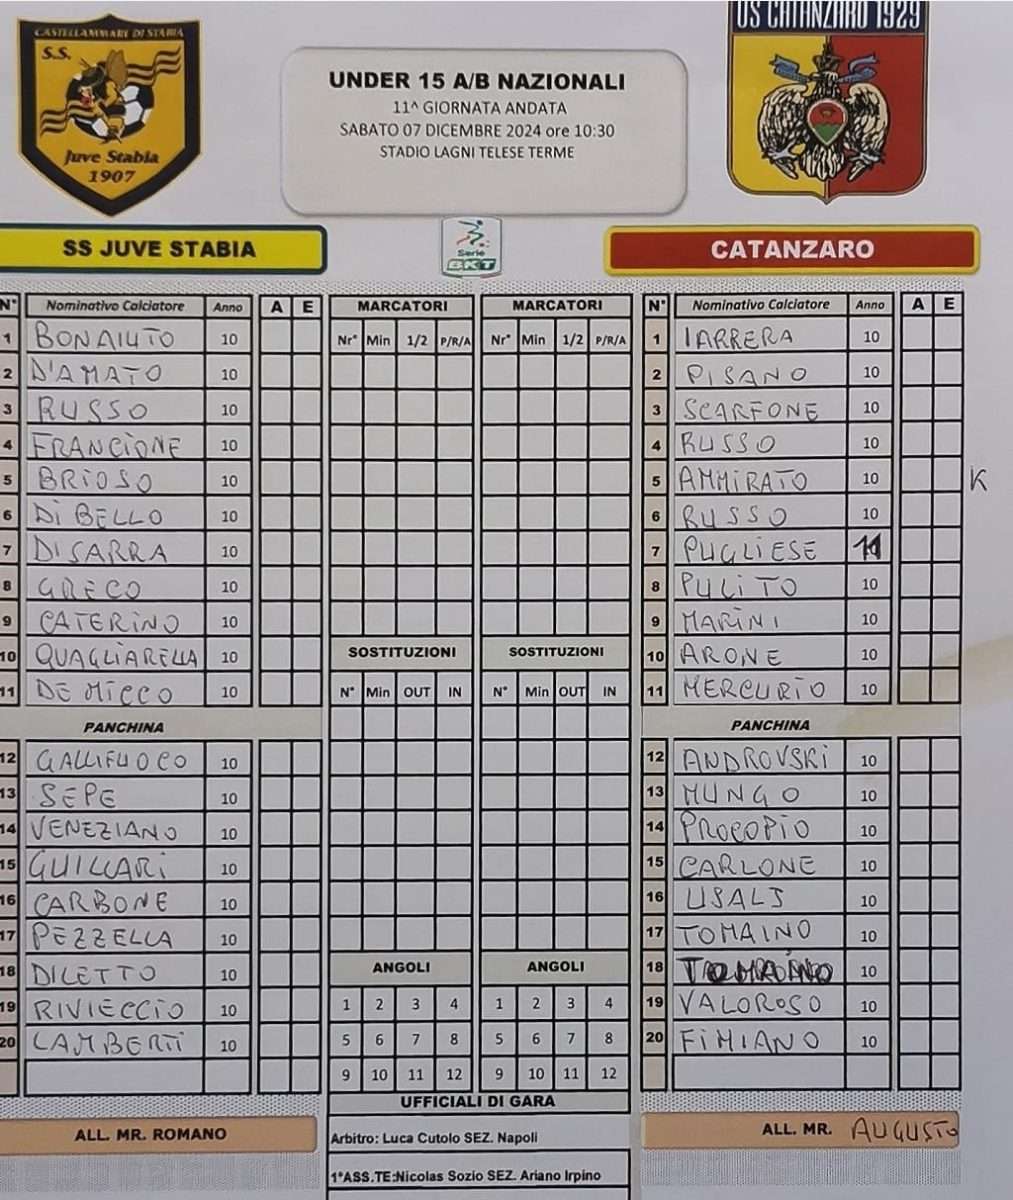 CASTELLAMMARE DI STABIA
S.S.
Juve Stabia
1907
UNDER 15 A/B NAZIONALI
11^ GIORNATA ANDATA
SABATO 07 DICEMBRE 2024 ore 10:30
STADIO LAGNI TELESE TERME
US CATANZARO 1929
SS JUVE STABIA
Serie
BKT
CATANZARO
N° Nominativo Calciatore Anno A E
1 BONAIUTO 10
2 D'AMATO 10
3 RUSSO 10
4 FRANCIONE 10
5 BRIOSO 10
6 DI BELLO 10
7 DI SARRA 10
8 GRECO 10
9 CATERINO 10
10 QUAGLIARELLA 10
11 DE MICCO 10
PANCHINA
12 GALLIFUOCO 10
13 SEPE 10
14 VENEZIANO 10
15 GUILLARI 10
16 CARBONE 10
17 PEZZELLA 10
18 DILETTO 10
19 RIVIECCIO 10
20 LAMBERTI 10
ALL. MR. ROMANO
MARCATORI MARCATORI
Nr° Min 1/2 P/R/A Nr° Min 1/2 P/R/A
SOSTITUZIONI SOSTITUZIONI
N° Min OUT IN N° Min OUT IN
ANGOLI ANGOLI
1 2 3 4 1 2 3 4
5 6 7 8 5 6 7 8
9 10 11 12 9 10 11 12
UFFICIALI DI GARA
Arbitro: Luca Cutolo SEZ. Napoli
1°ASS.TE:Nicolas Sozio SEZ. Ariano Irpino
N° Nominativo Calciatore Anno A E
1 IARRERA 10
2 PISANO 10
3 SCARFONE 10
4 RUSSO 10
5 AMMIRATO 10 K
6 RUSSO 10
7 PUGLIESE 11
8 PULITO 10
9 MARINI 10
10 ARONE 10
11 MERCURIO 10
PANCHINA
12 ANDROVSKI 10
13 MUNGO 10
14 PROCOPIO 10
15 CARLONE 10
16 USALJ 10
17 TOMAINO 10
18 10
19 VALOROSO 10
20 FIMIANO 10
ALL. MR. AUGUSTO